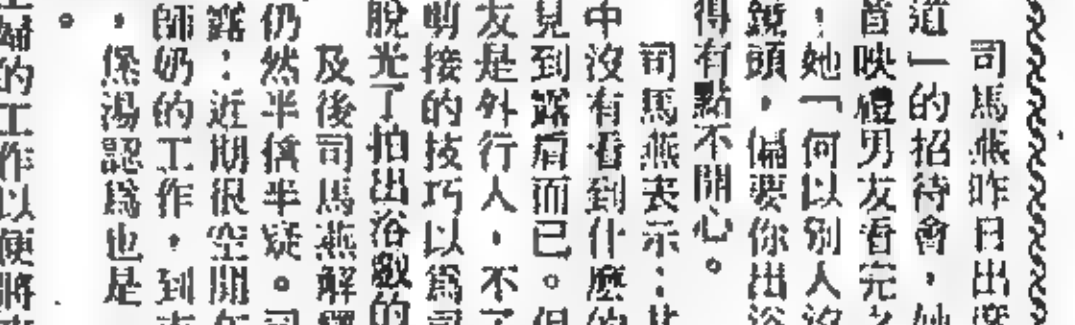 司馬燕昨日出席
道」的招待會，她
首映禮男友看完之
，她「何以別人沒
鏡頭，偏要你出浴
得有點不開心。
司馬燕表示：其
中沒有看到什麼的
見到露肩而已。但
友是外行人，不了
剪接的技巧以爲司
脫光了拍出浴戲的
及後司馬燕解釋
仍然半信半疑。司
露：近期很空閒在
師奶的工作，到
，保湯認爲也是
。
婦的工作以便將來